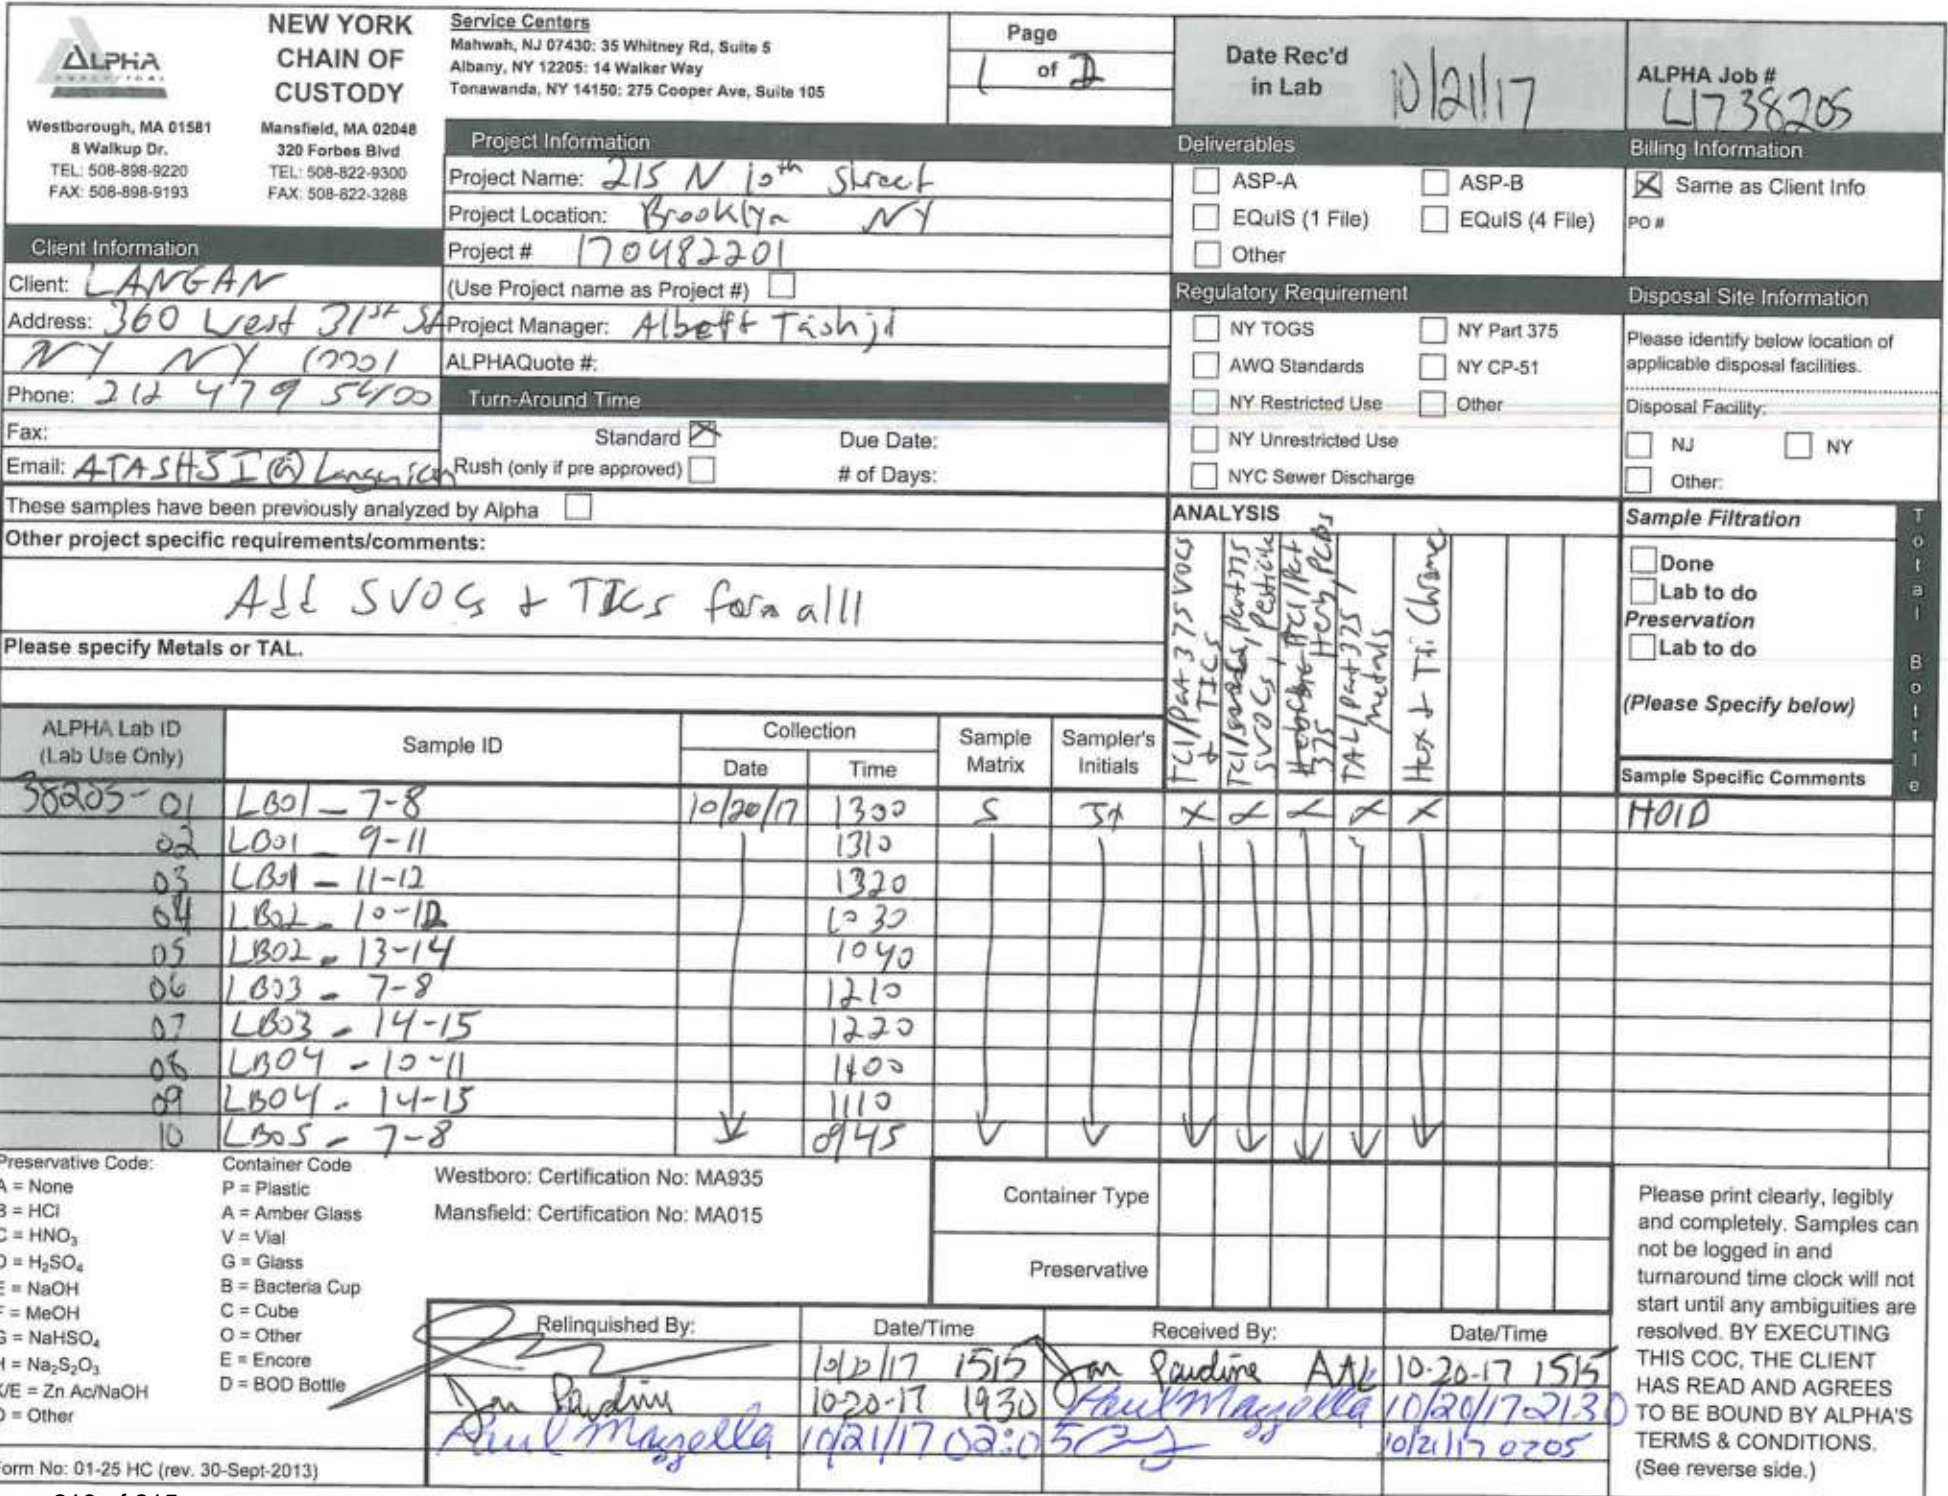 ALPHA
ANALYTICAL
Westborough, MA 01581
8 Walkup Dr.
TEL: 508-898-9220
FAX: 508-898-9193
NEW YORK
CHAIN OF
CUSTODY
Mansfield, MA 02048
320 Forbes Blvd
TEL: 508-822-9300
FAX: 508-822-3288
Service Centers
Mahwah, NJ 07430: 35 Whitney Rd, Suite 5
Albany, NY 12205: 14 Walker Way
Tonawanda, NY 14150: 275 Cooper Ave, Suite 105
Page
1 of 2
Date Rec'd
in Lab 10/21/17
ALPHA Job #
L1738205
Project Information
Project Name: 215 N 10th Street
Project Location: Brooklyn NY
Project # 170482201
(Use Project name as Project #)
Project Manager: Albert Tashji
ALPHAQuote #:
Client Information
Client: LANGAN
Address: 360 West 31st St
NY NY 10001
Phone: 212 479 5400
Fax:
Email: ATASHJI@Langan.com
Turn-Around Time
Standard X Due Date:
Rush (only if pre approved) # of Days:
Deliverables
ASP-A ASP-B
EQuIS (1 File) EQuIS (4 File)
Other
Regulatory Requirement
NY TOGS NY Part 375
AWQ Standards NY CP-51
NY Restricted Use Other
NY Unrestricted Use
NYC Sewer Discharge
Billing Information
X Same as Client Info
PO #
Disposal Site Information
Please identify below location of
applicable disposal facilities.
Disposal Facility:
NJ NY
Other:
These samples have been previously analyzed by Alpha
Other project specific requirements/comments:
Add SVOCs + TICs for all
Please specify Metals or TAL.
ANALYSIS
TCl/Part 375 VOCs
+ TICS
TCl/Part 375
SVOCs, Pesticide
TCl/Part
375 Herb, PCBs
TAL/Part 375
metals
Hex + Tri Chrome
Sample Filtration
Done
Lab to do
Preservation
Lab to do
(Please Specify below)
Total Bottle
ALPHA Lab ID
(Lab Use Only)
Sample ID
Collection
Date Time
Sample
Matrix
Sampler's
Initials
Sample Specific Comments
38205-01 LB01_7-8 10/20/17 1300 S JA X X X X X HOLD
02 LB01_9-11 1310
03 LB01_11-12 1320
04 LB02_10-12 1030
05 LB02_13-14 1040
06 LB03_7-8 1210
07 LB03_14-15 1220
08 LB04_10-11 1100
09 LB04_14-15 1110
10 LB05_7-8 0945
Preservative Code:
A = None
B = HCl
C = HNO3
D = H2SO4
E = NaOH
F = MeOH
G = NaHSO4
H = Na2S2O3
K/E = Zn Ac/NaOH
O = Other
Container Code
P = Plastic
A = Amber Glass
V = Vial
G = Glass
B = Bacteria Cup
C = Cube
O = Other
E = Encore
D = BOD Bottle
Westboro: Certification No: MA935
Mansfield: Certification No: MA015
Container Type
Preservative
Relinquished By: Date/Time Received By: Date/Time
10/20/17 1515 Jan Paudine AAL 10-20-17 1515
Jan Paudine 10-20-17 1930 Paul Mazzella 10/20/17 2130
Paul Mazzella 10/21/17 02:05 10/21/17 0205
Please print clearly, legibly
and completely. Samples can
not be logged in and
turnaround time clock will not
start until any ambiguities are
resolved. BY EXECUTING
THIS COC, THE CLIENT
HAS READ AND AGREES
TO BE BOUND BY ALPHA'S
TERMS & CONDITIONS.
(See reverse side.)
Form No: 01-25 HC (rev. 30-Sept-2013)